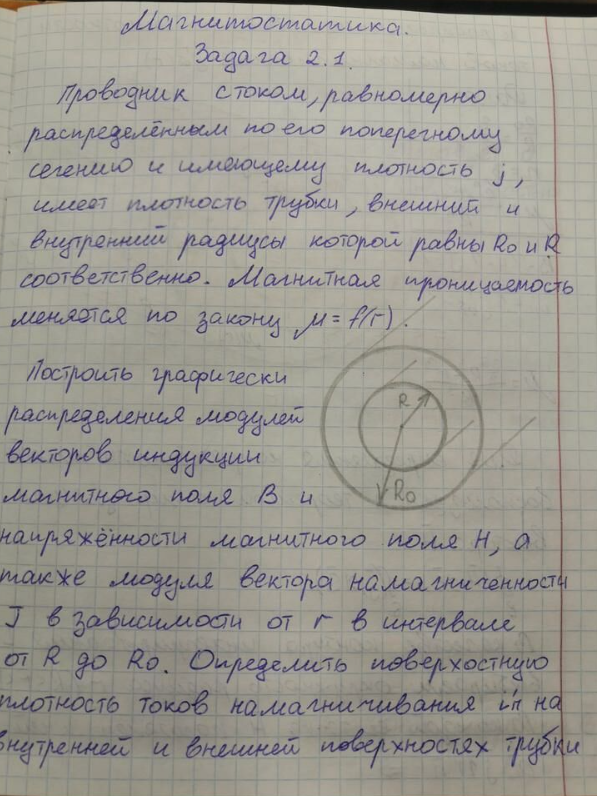 Магнитостатика.
Задача 2.1.
Проводник с током, равномерно
распределённым по его поперечному
сечению и имеющему плотность j,
имеет плотность трубки, внешний и
внутренний радиусы которой равны R₀ и R
соответственно. Магнитная проницаемость
меняется по закону μ = f(r).
Построить графически
распределения модулей
векторов индукции
магнитного поля B и
напряжённости магнитного поля H, а
также модуля вектора намагниченности
J в зависимости от r в интервале
от R до R₀. Определить поверхостную
плотность токов намагничивания i'п на
внутренней и внешней поверхностях трубки
R
R₀